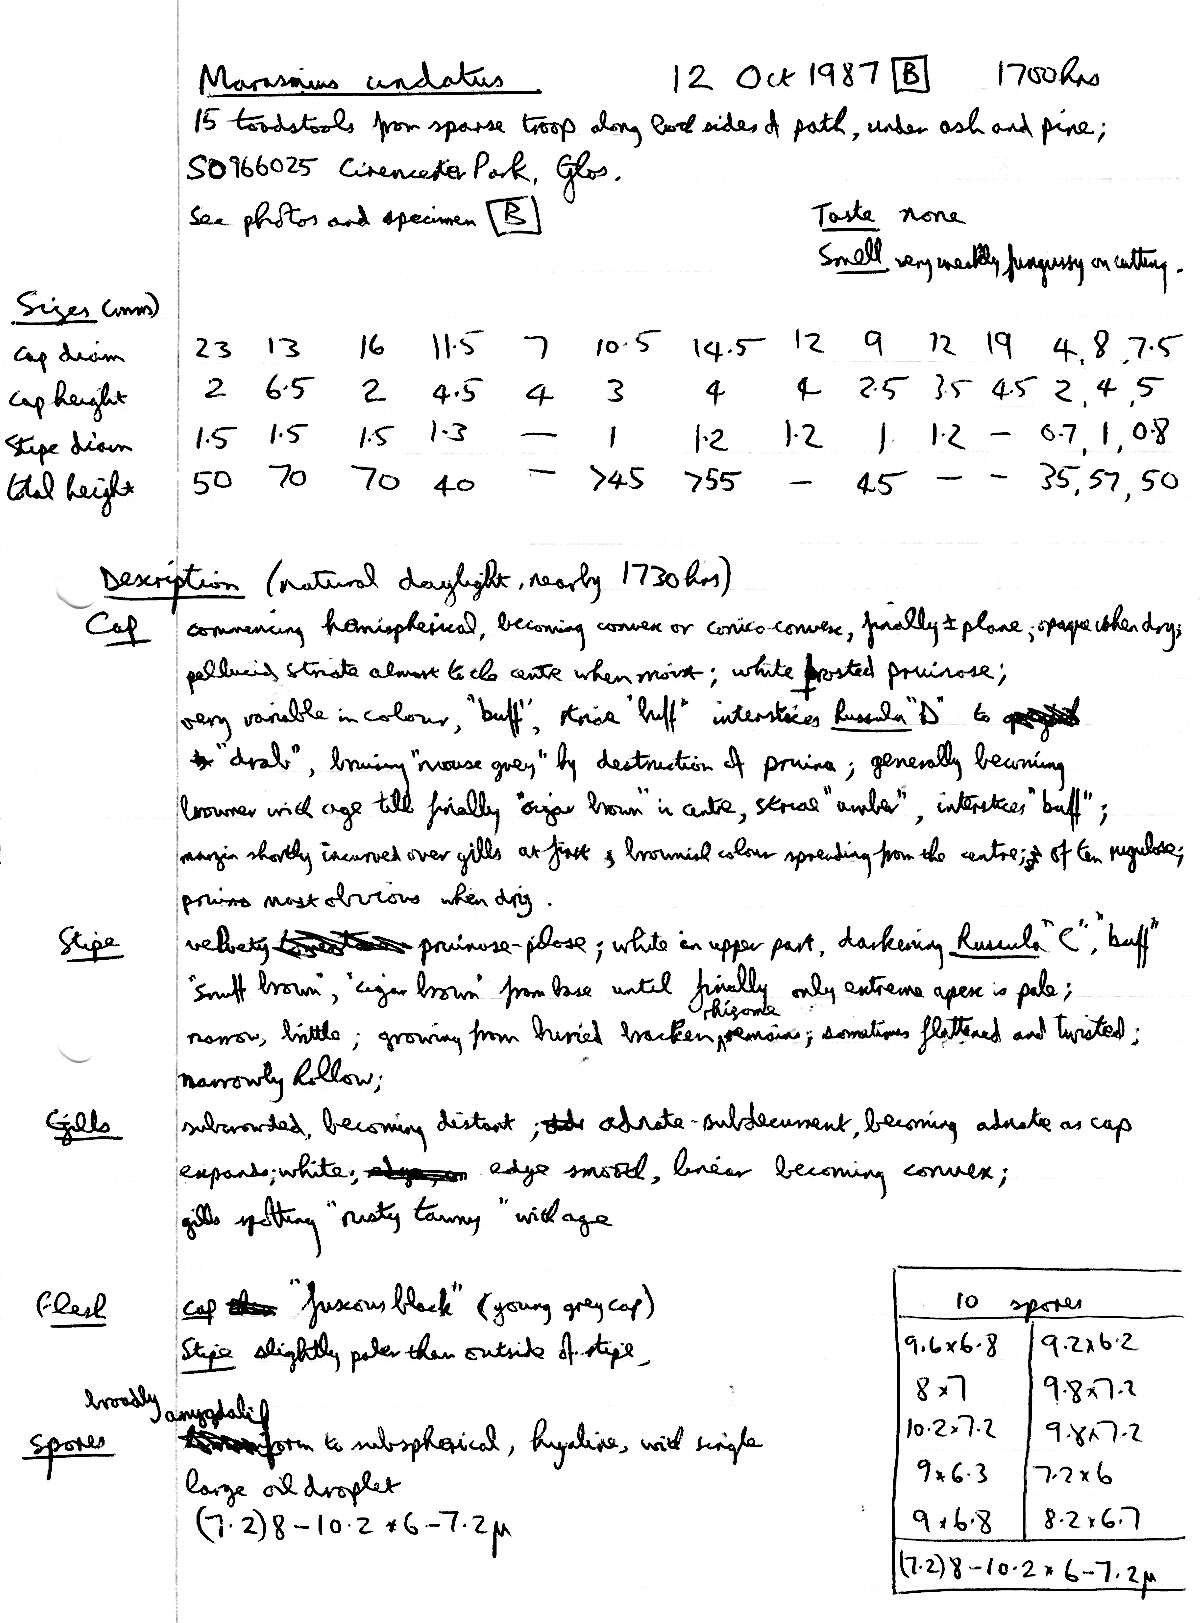 Marasmius undatus 12 Oct 1987 B 1700hrs
15 toadstools from sparse troop along both sides of path, under ash and pine;
SO966025 Cirencester Park, Glos.
See photos and specimen B
Taste none
Smell very weakly fungussy on cutting.
Sizes (mm)
Cap diam 23 13 16 11.5 7 10.5 14.5 12 9 12 19 4, 8, 7.5
Cap height 2 6.5 2 4.5 4 3 4 4 2.5 3.5 4.5 2, 4, 5
Stipe diam 1.5 1.5 1.5 1.3 — 1 1.2 1.2 1 1.2 — 0.7, 1, 0.8
total height 50 70 70 40 — >45 >55 — 45 — — 35, 57, 50
Description (natural daylight, nearby 1730hrs)
Cap commencing hemispherical, becoming convex or conico-convex, finally ± plane; opaque when dry;
pellucid striate almost to the centre when moist; white frosted pruinose;
very variable in colour, "buff", striae "buff" interstices Russula "D" to
"drab", bruising "mouse grey" by destruction of pruina; generally becoming
browner with age till finally "cigar brown" in centre, striae "umber", interstices "buff";
margin shortly incurved over gills at first; brownish colour spreading from the centre; often rugulose;
pruina most obvious when dry.
Stipe velvety pruinose-pilose; white in upper part, darkening Russula "C", "buff"
"snuff brown", "cigar brown" from base until finally only extreme apex is pale;
narrow, brittle; growing from buried bracken rhizome remains; sometimes flattened and twisted;
narrowly hollow;
Gills subcrowded, becoming distant; adnate-subdecurrent, becoming adnate as cap
expands; white; edge smooth, linear becoming convex;
gills spotting "rusty tawny" with age
Flesh cap "fuscous black" (young grey cap)
Stipe slightly paler than outside of stipe.
Spores broadly amygdaliform to subspherical, hyaline, with single
large oil droplet
(7.2)8–10.2 × 6–7.2μ
10 spores
9.6×6.8 9.2×6.2
8×7 9.8×7.2
10.2×7.2 9.8×7.2
9×6.3 7.2×6
9×6.8 8.2×6.7
(7.2)8–10.2 × 6–7.2μ